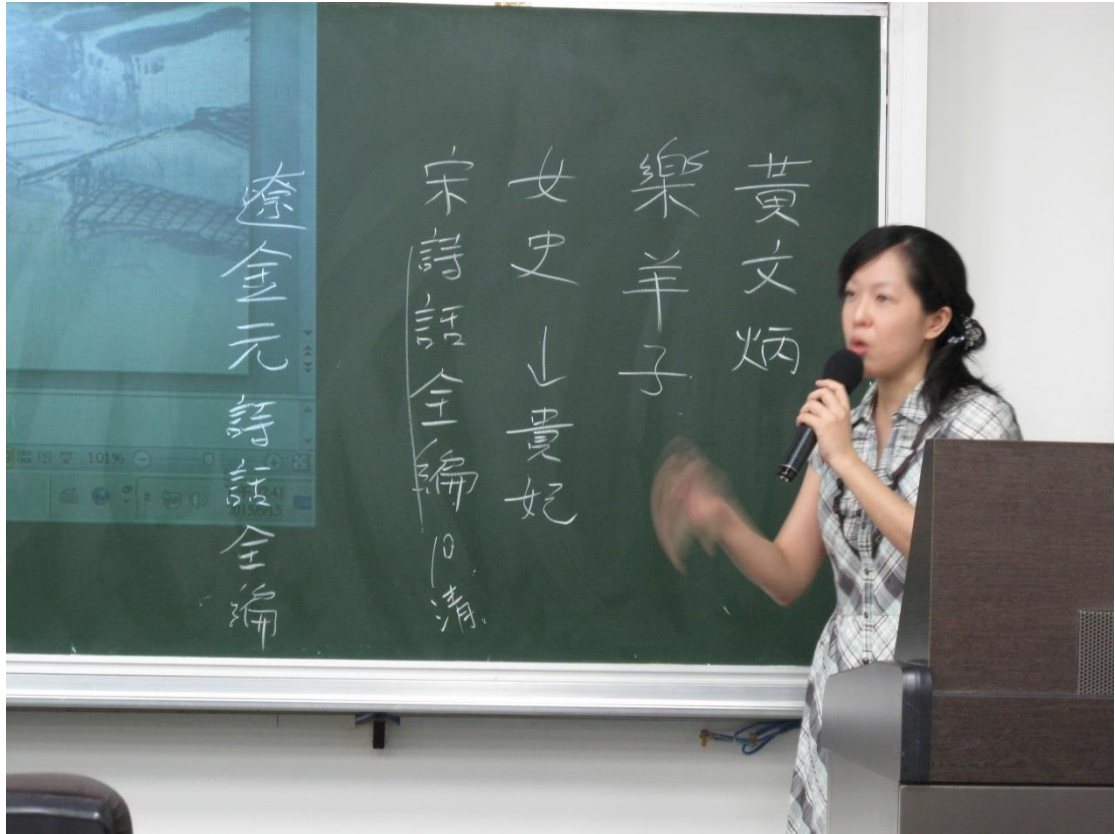 黃文炳
樂羊子
女史↓貴妃
宋詩話全編10清
遼金元詩話全編
101%